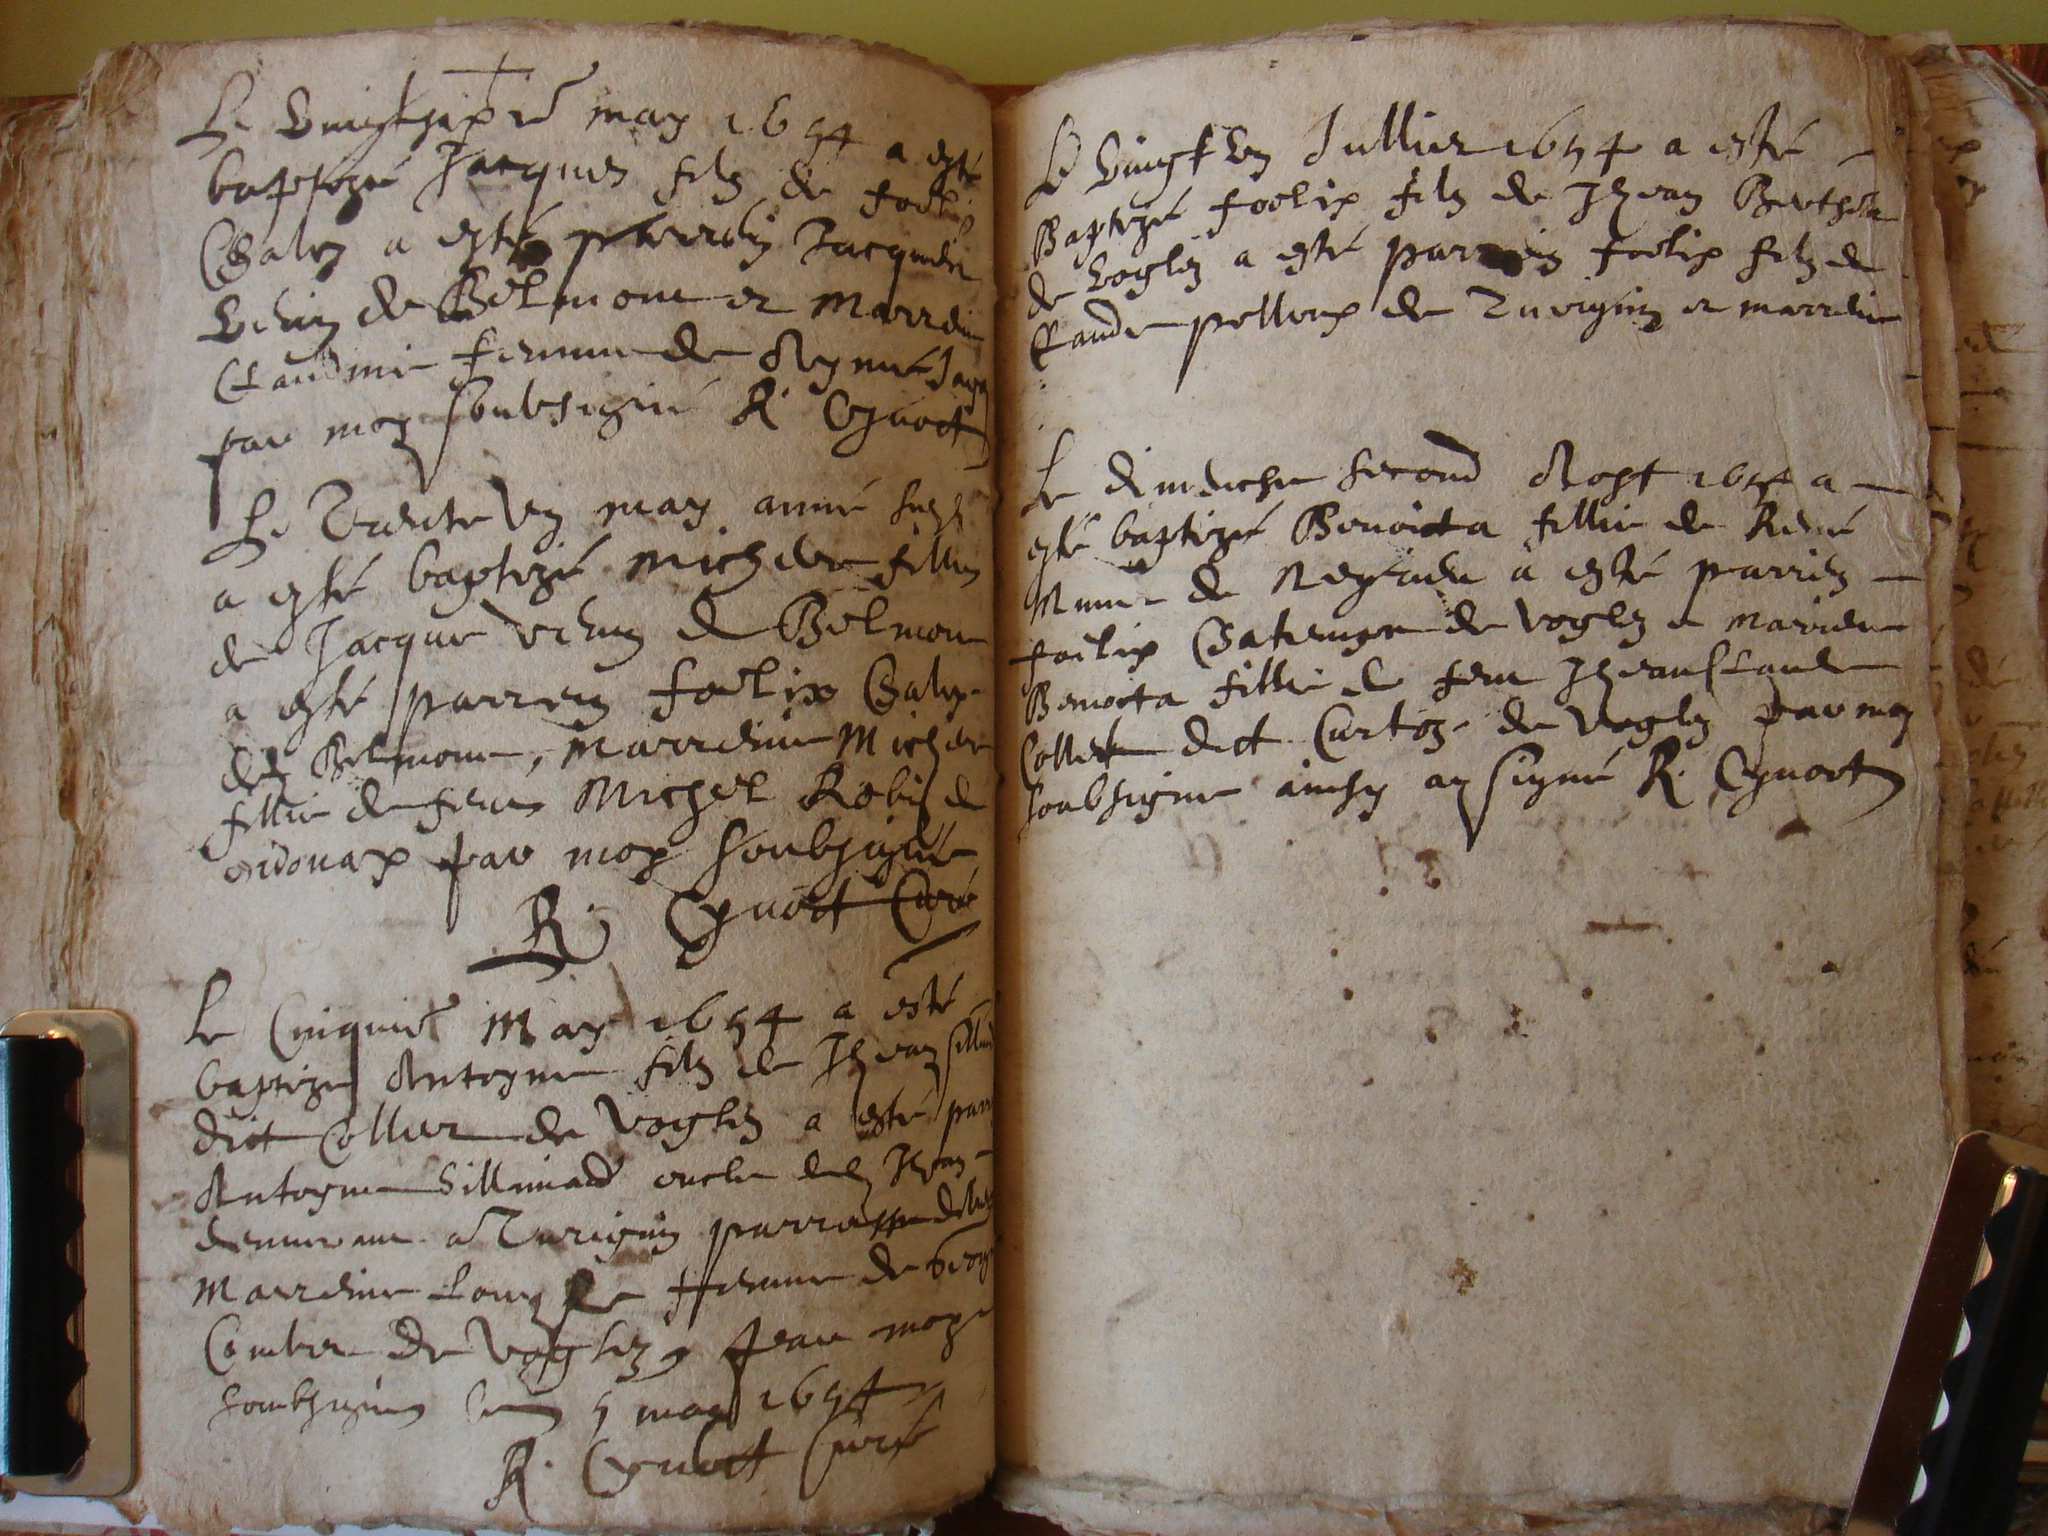 Le vingtsixe may 1654 a esté
baptizé Jacques filz de foelix
Galez a esté parrein Jacques
Vehin de Belmont et marreine
Claudine femme de Aymé
par moy soubsigné R. Cynoct
Le trente un may année susd
a esté baptizé michele fille
de Jacque Vehin de Belmont
a esté parrein foelix Galex
de Belmont, marreine Michele
fillie de feu Michel Robi de
ordonax par moy soubsigné
R. Cynoct Curé
Le Cinquie May 1654 a esté
baptizé Antoyne filz de Jhean
dict Collier de Voglez a esté par
Antoyne Sillimad oncle dud Jhean
demeurant a Turigin parroisse
Marreine Louyse femme de
Comber de Voglez par moy
soubsigné ce 5 may 1654
R. Cynoct Curé
Le vingt un Jullier 1654 a esté
Baptizé foelix filz de Jhean Berthela
de voglez a esté parrein foelix filz de
Claude pelloux de Turigin et marreine
Le dimenche second Aost 1654 a
esté baptizé Benoicta fillie de René
de a esté parrein
foelix de Voglez et marreine
Benoicta fillie de feu Jhean Claude
Collet dict Curtoz de Voglez par moy
soubsigne ainsy ay signé R. Cynoct